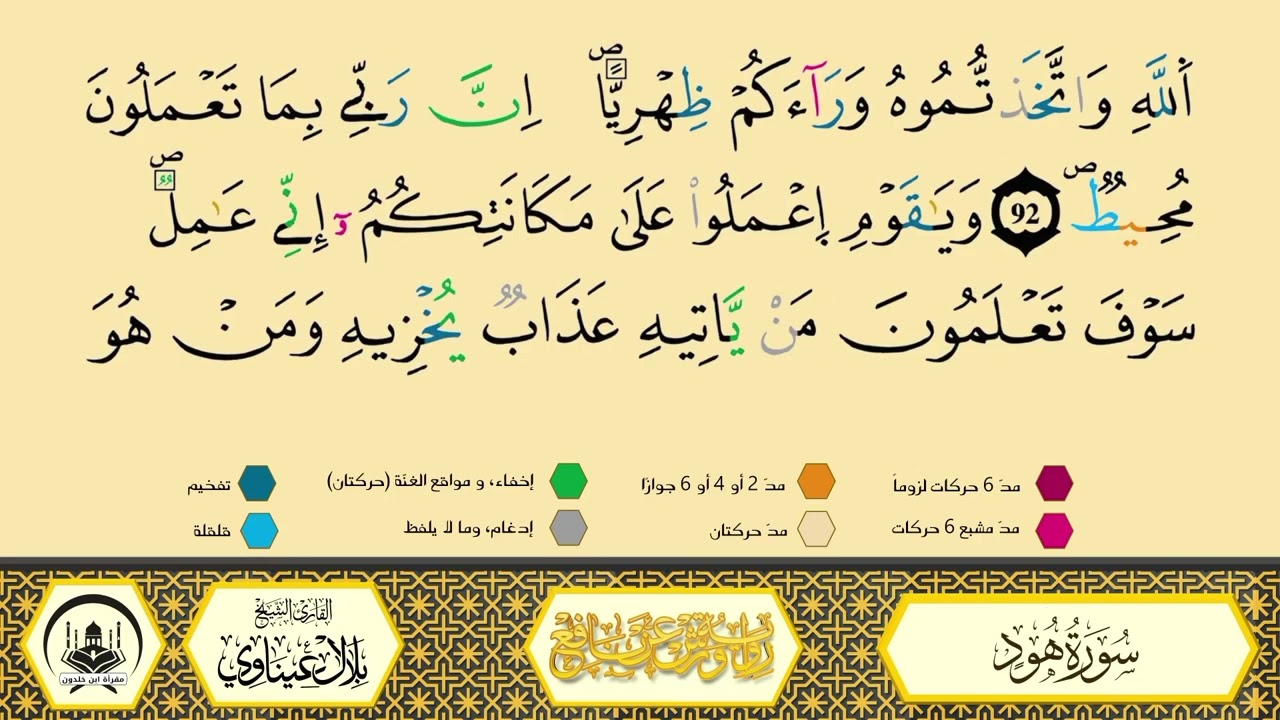 اَ۬للَّهِ وَاتَّخَذتُّمُوهُ وَرَآءَكُمْ ظِهْرِيّاًۖ اِنَّ رَبِّے بِمَا تَعْمَلُونَ
مُحِيطٌۖ 92 وَيَٰقَوْمِ إِعْمَلُواْ عَلَىٰ مَكَانَتِكُمُۥٓ إِنِّے عَٰمِلٌۖ
سَوْفَ تَعْلَمُونَ مَنْ يَّاتِيهِ عَذَابٌ يُخْزِيهِ وَمَنْ هُوَ
مدّ 6 حركات لزوماً مدّ 2 أو 4 أو 6 جوازًا إخفاء، و مواقع الغنّة (حركتان) تفخيم
مدّ مشبع 6 حركات مدّ حركتان إدغام، وما لا يلفظ قلقلة
سُورَةُ هُودٍ
رواية ورش عن نافع
القارئ الشيخ
بلال عيناوي
مقرأة ابن خلدون